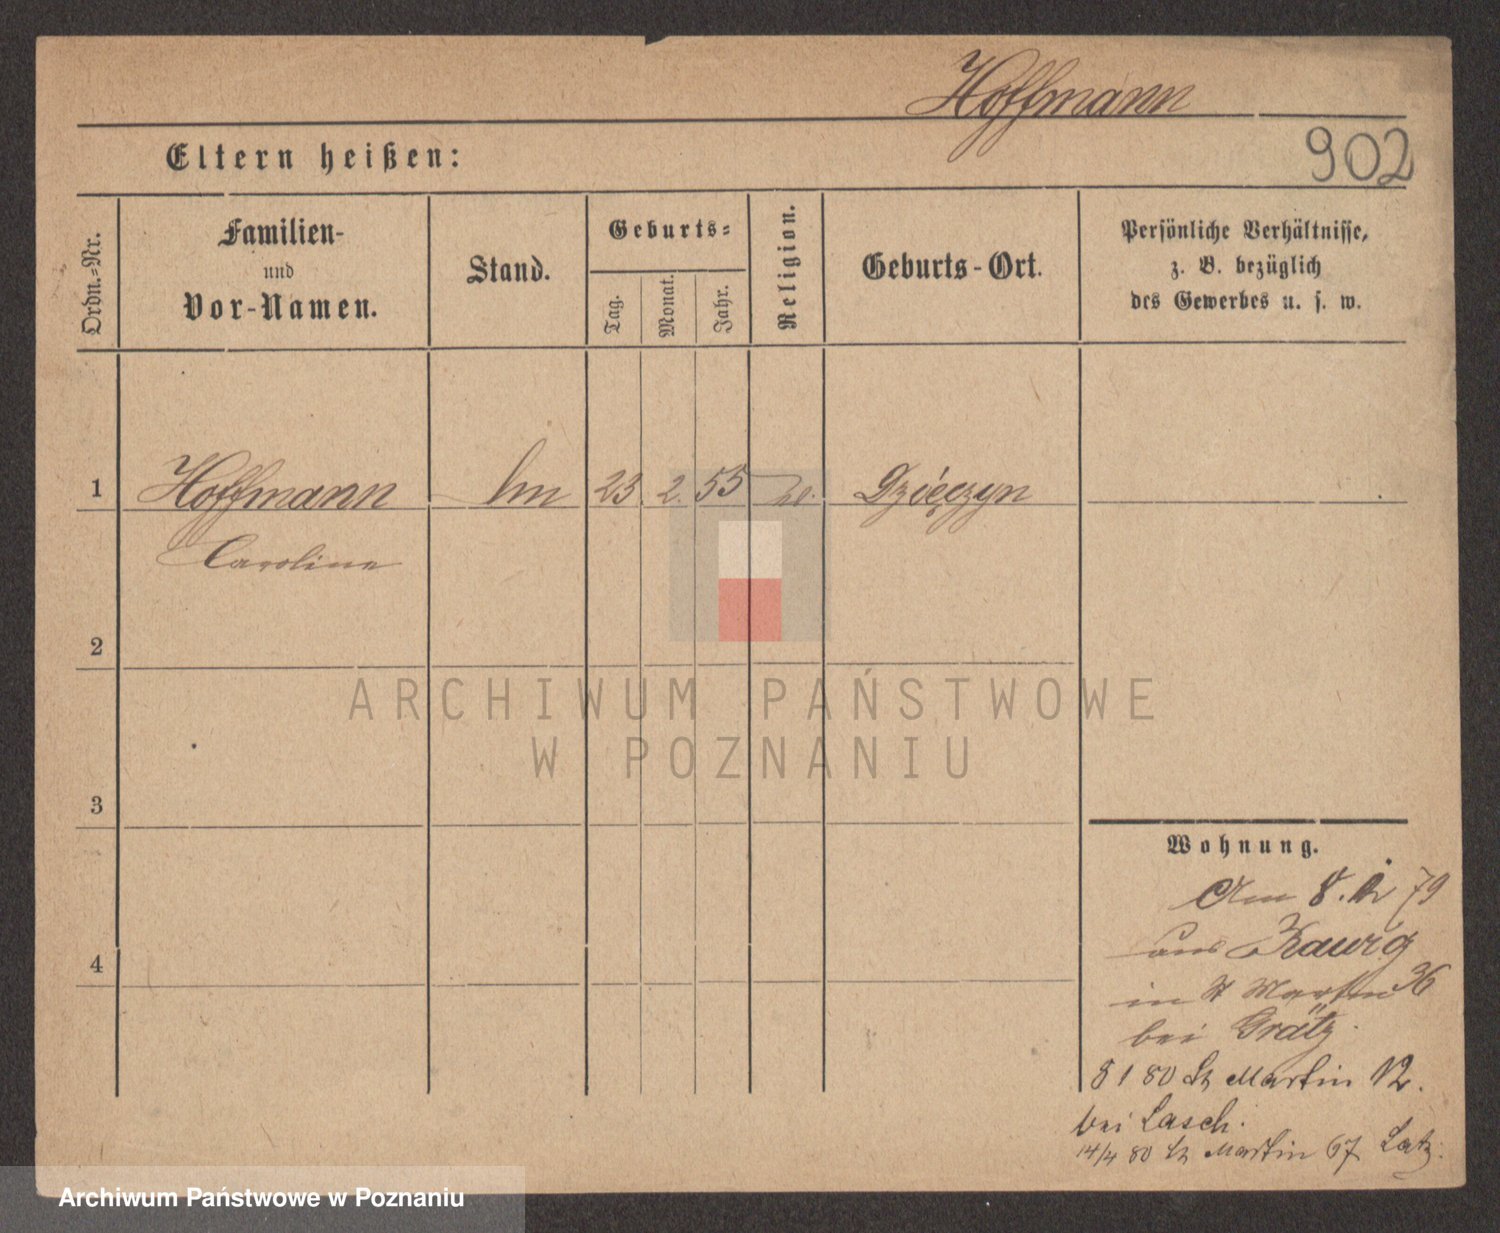 Hoffmann
902
Eltern heißen:
Ordn.=Nr.
Familien-
und
Vor-Namen.
Stand.
Geburts=
Tag.
Monat.
Jahr.
Religion.
Geburts-Ort.
Persönliche Verhältnisse,
z. B. bezüglich
des Gewerbes u. s. w.
1
Hoffmann
23.
2.
55
Dzięczyn
Caroline
2
ARCHIWUM PAŃSTWOWE
W POZNANIU
3
Wohnung.
Am 8. 79
aus
4
in St Martin 36
bei Grätz.
8 1 80 St Martin 12.
bei Lasch.
14/4 80 St Martin 67 Latz.
Archiwum Państwowe w Poznaniu